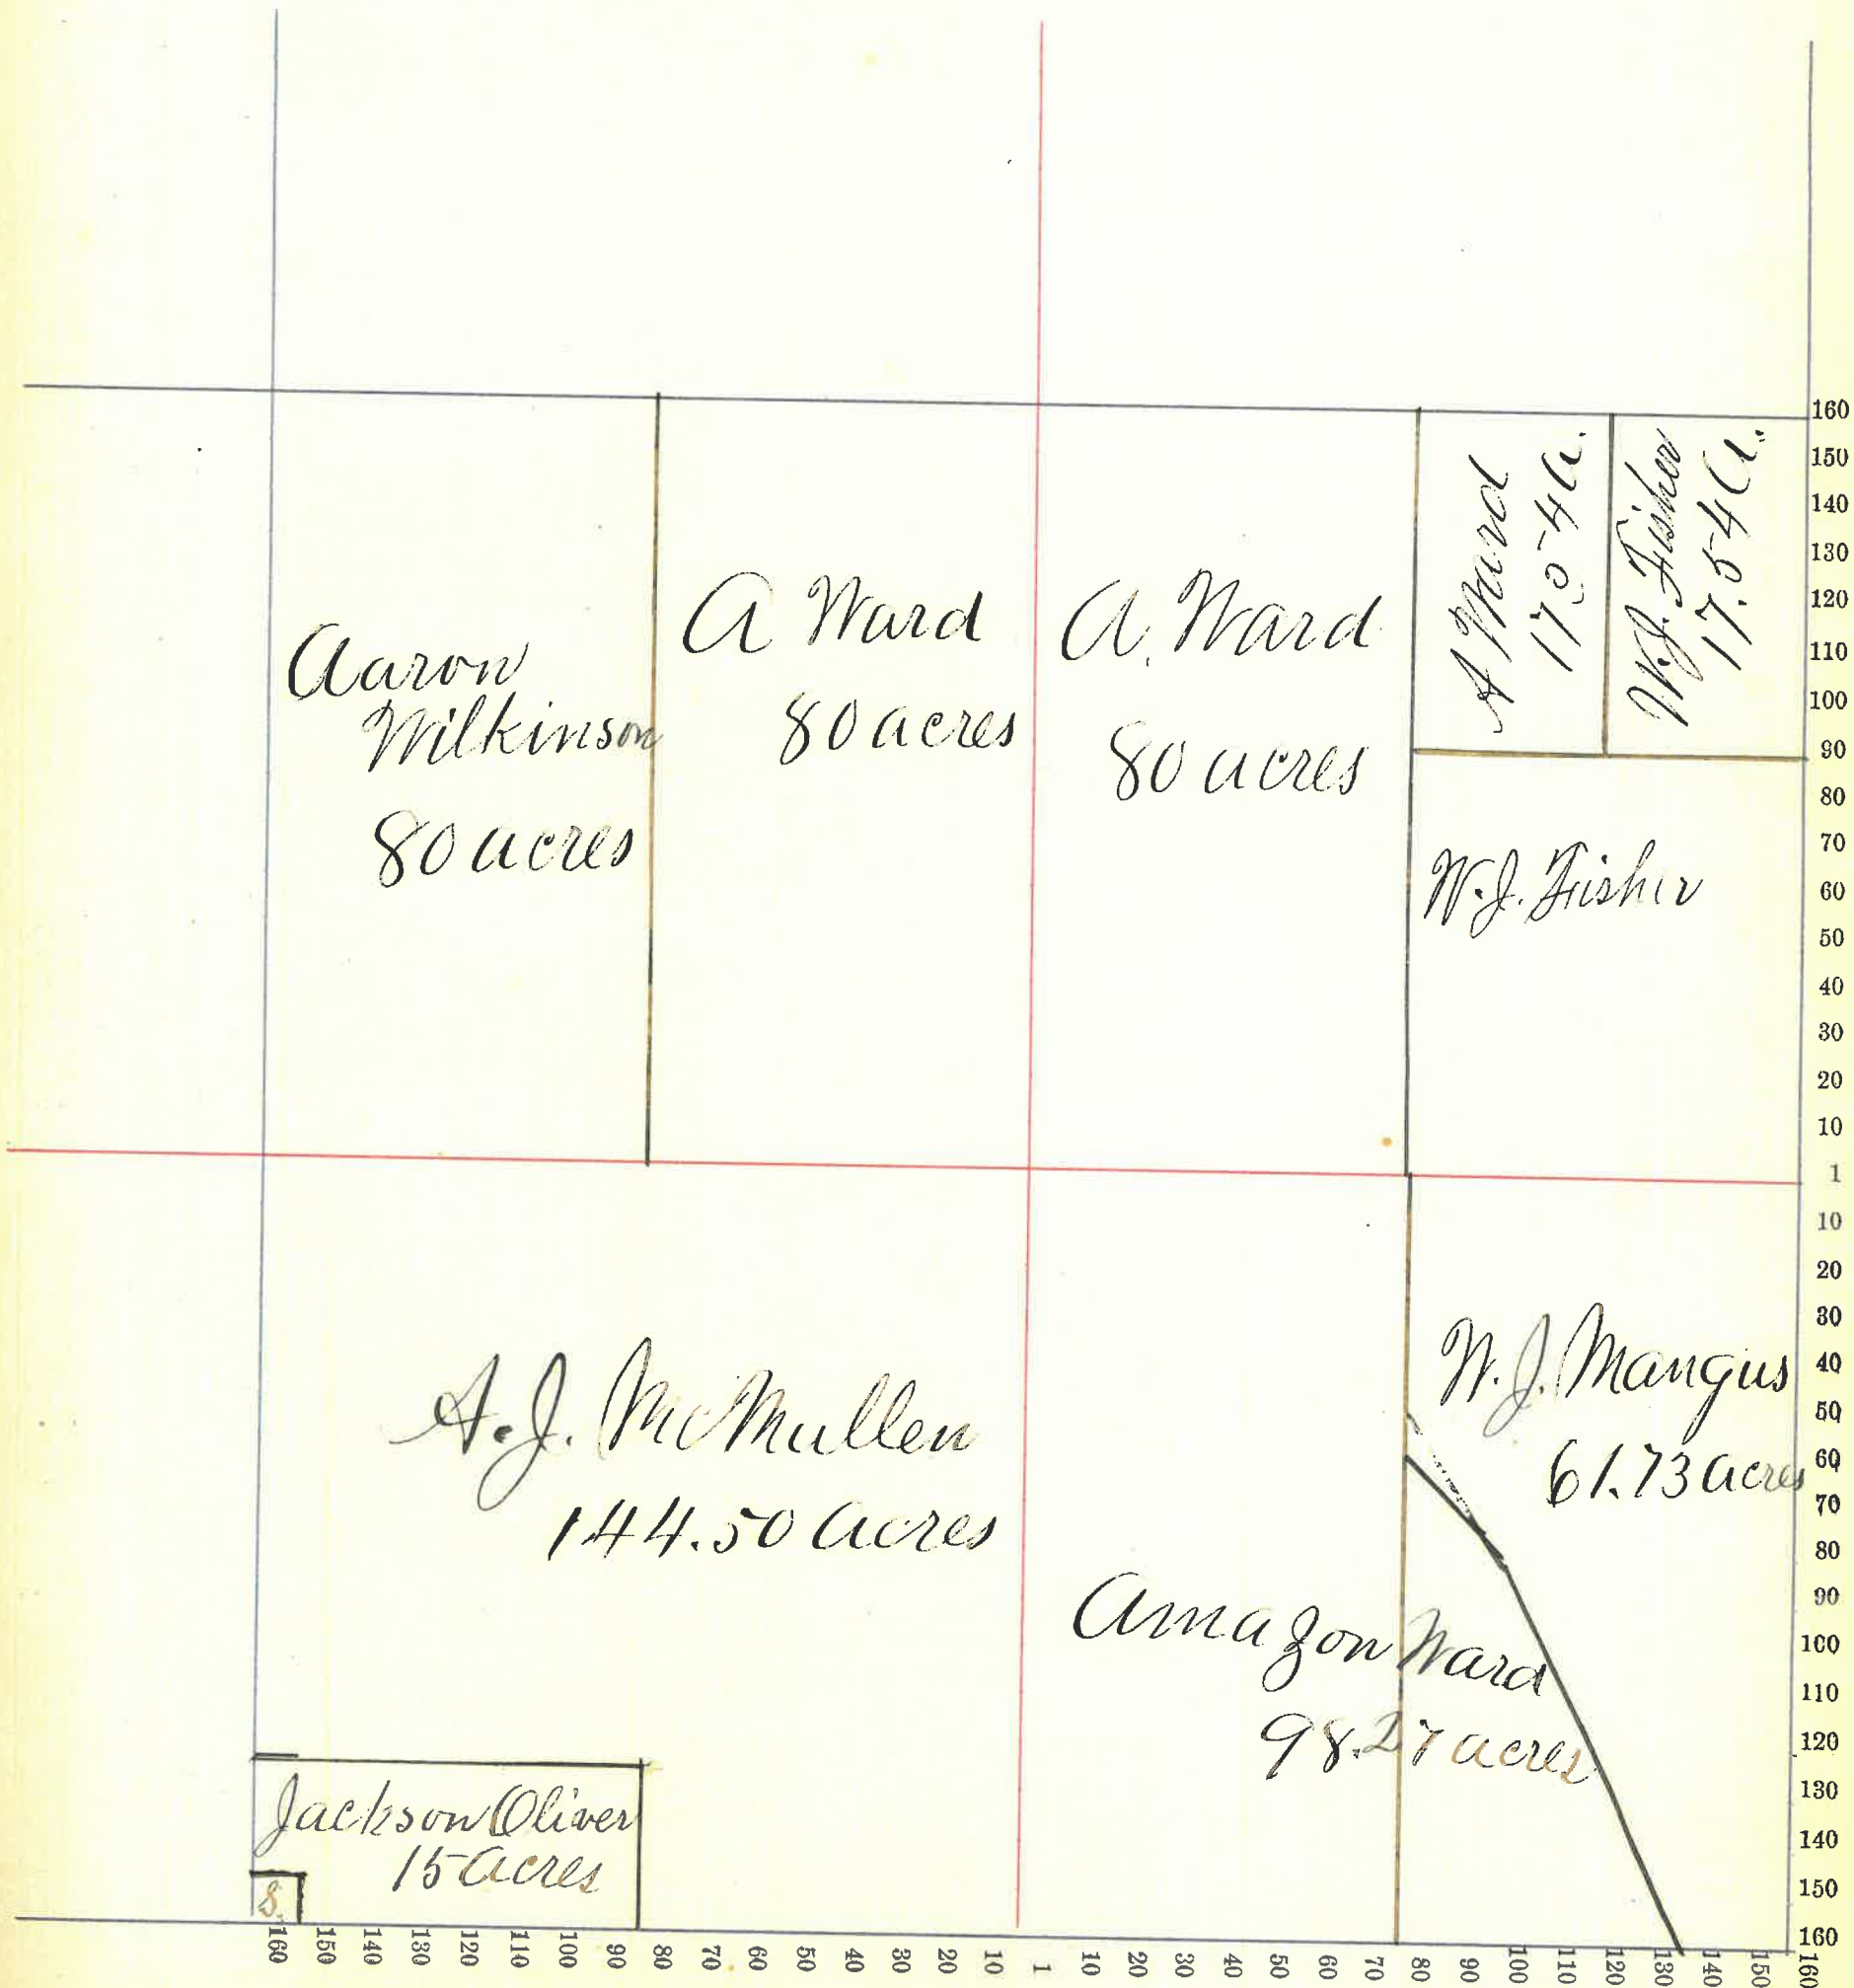 Aaron
Wilkinson
80 acres
A Ward
80 acres
A. Ward
80 acres
A Ward
17.54 a.
W.J. Fisher
17.54 a.
W.J. Fisher
A.J. McMullen
144.50 acres
W.J. Mangus
61.73 acres
Amazon Ward
98.27 acres
Jackson Oliver
15 acres
S.
160
150
140
130
120
110
100
90
80
70
60
50
40
30
20
10
1
10
20
30
40
50
60
70
80
90
100
110
120
130
140
150
160
160 150 140 130 120 110 100 90 80 70 60 50 40 30 20 10 1 10 20 30 40 50 60 70 80 90 100 110 120 130 140 150 160